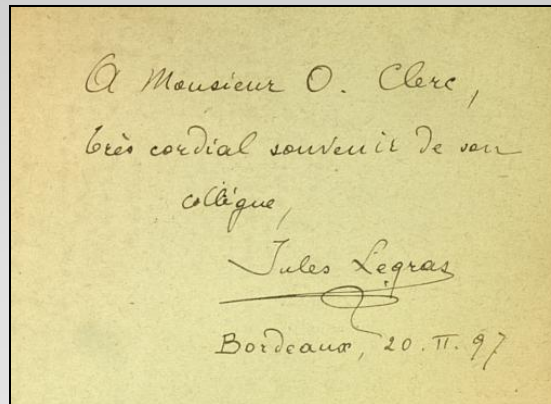 A Monsieur O. Clerc,
très cordial souvenir de son
collègue,
Jules Legras
Bordeaux, 20.II.97